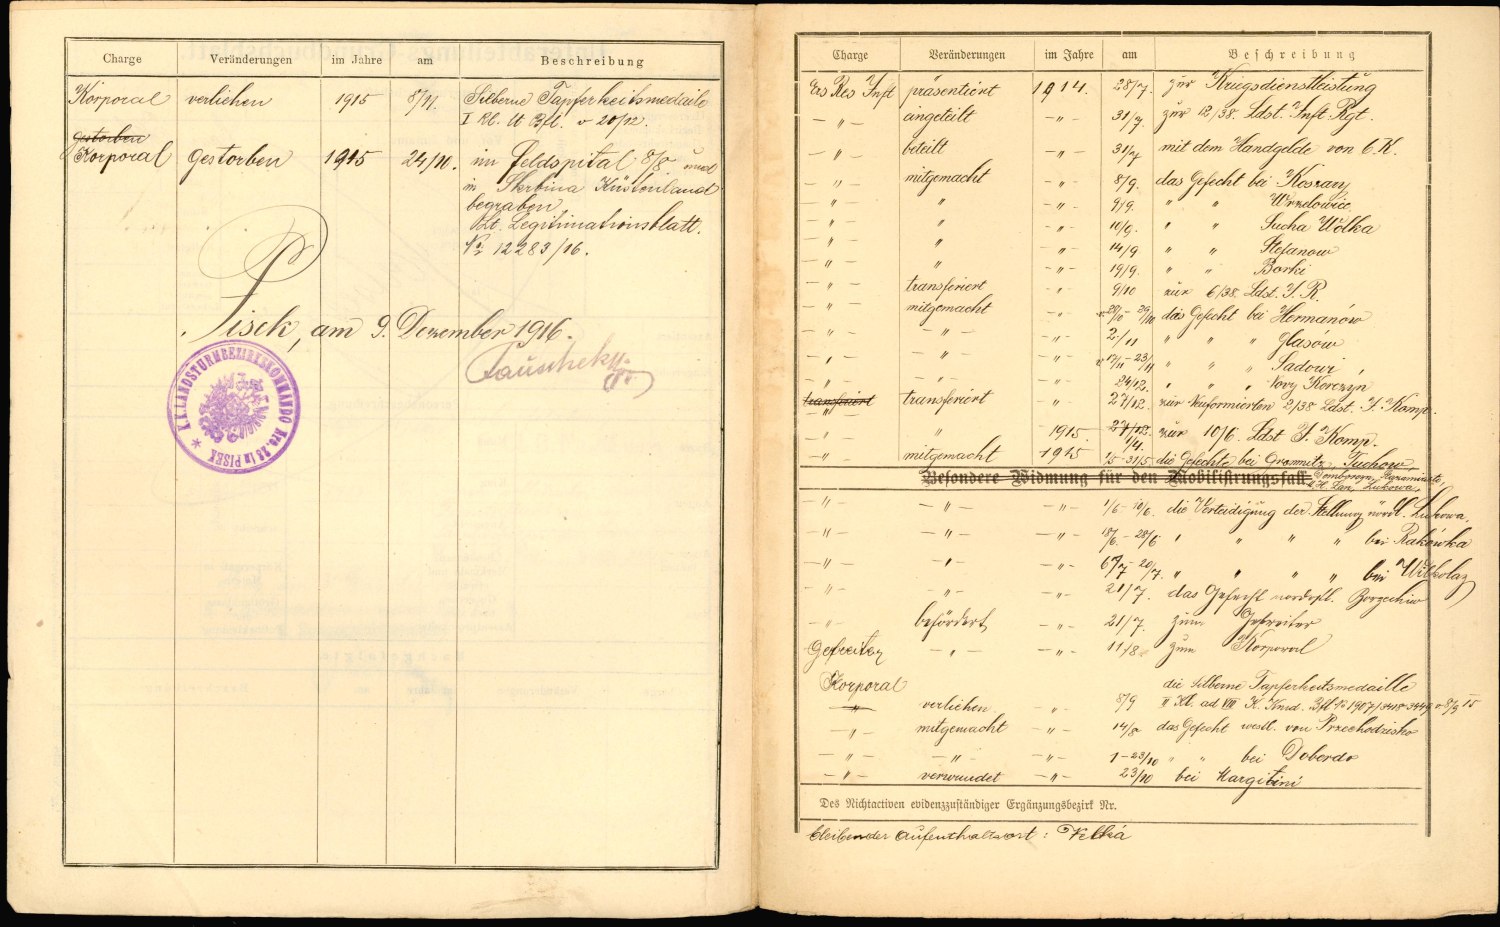 Charge Veränderungen im Jahre am Beschreibung
Korporal verliehen 1915 8/11. Silberne Tapferkeitsmedaile
I Kl. lt Bfl. v 20/12.
gestorben
Korporal gestorben 1915 24/10. im Feldspital 8/8. und
in Skrbina Küstenland
begraben
Lt. Legitimationsblatt.
Nr 12283/16.
Pisek, am 9. Dezember 1916.
K.K. LANDSTURMBEZIRKSKOMMANDO Nro. 28 in PISEK
Charge Veränderungen im Jahre am Beschreibung
Ers Res Inft präsentiert 1914. 28/7. zur Kriegsdienstleistung
-„- eingeteilt -„- 31/7. zur 12/38. Ldst. Inft Rgt.
-„- beteilt -„- 31/7 mit dem Handgelde von 6 K.
-„- mitgemacht -„- 8/9. das Gefecht bei Koszary
-„- „ -„- 9/9. „ „ Urzedowice
-„- „ -„- 10/9. „ „ Sucha Wólka
-„- „ -„- 14/9 „ „ Stefanow
-„- „ -„- 19/9. „ „ Borki
-„- transferiert -„- 9/10 zur 6/38. Ldst. I. R.
-„- mitgemacht -„- v 20/10 - 29/10 das Gefecht bei Hermanów
-„- -„- -„- 2/11 „ „ „ Glasów
-„- -„- -„- v 17/11 - 23/11 „ „ „ Sadowi
-„- -„- -„- 24/12. „ „ „ Novy Korczyn
transferiert transferiert -„- 27/12. zur Neuformierten 2/38 Ldst. I. Komp.
-„- „ 1915. 27/12. 1/4. zur 10/6. Ldst I. Komp.
-„- mitgemacht 1915 1/5 - 31/5. die Gefechte bei Gromnitz, Tuchow,
Besondere Widmung für den Mobilisirungsfall.
Lukowa,
-„- -„- -„- 1/6 - 10/6. die Verteidigung der Stellung nördl. Lukowa,
-„- -„- -„- 18/6. - 28/6 „ „ „ „ bei Rakówka
-„- -„- -„- 6/7 - 20/7. „ „ „ „ bei Wilkolaz
-„- -„- -„- 21/7. das Gefecht nordostl. Borzechiw
-„- befördert -„- 21/7. zum Gefreiter
Gefreiter -„- -„- 11/8 zum Korporal
Korporal die silberne Tapferkeitsmedaille
-„- verliehen -„- 8/9 II Kl. ad VIII K. Kmd. Bfl No 1907/3448-3449 v 8/9 15
-„- mitgemacht -„- 14/8 das Gefecht westl. von Przechodzisko
-„- -„- -„- 1-23/10 „ „ bei Doberdo
-„- verwundet -„- 23/10 bei Margitini
Des Nichtactiven evidenzzuständiger Ergänzungsbezirk Nr.
bleibender Aufenthaltsort : Velká